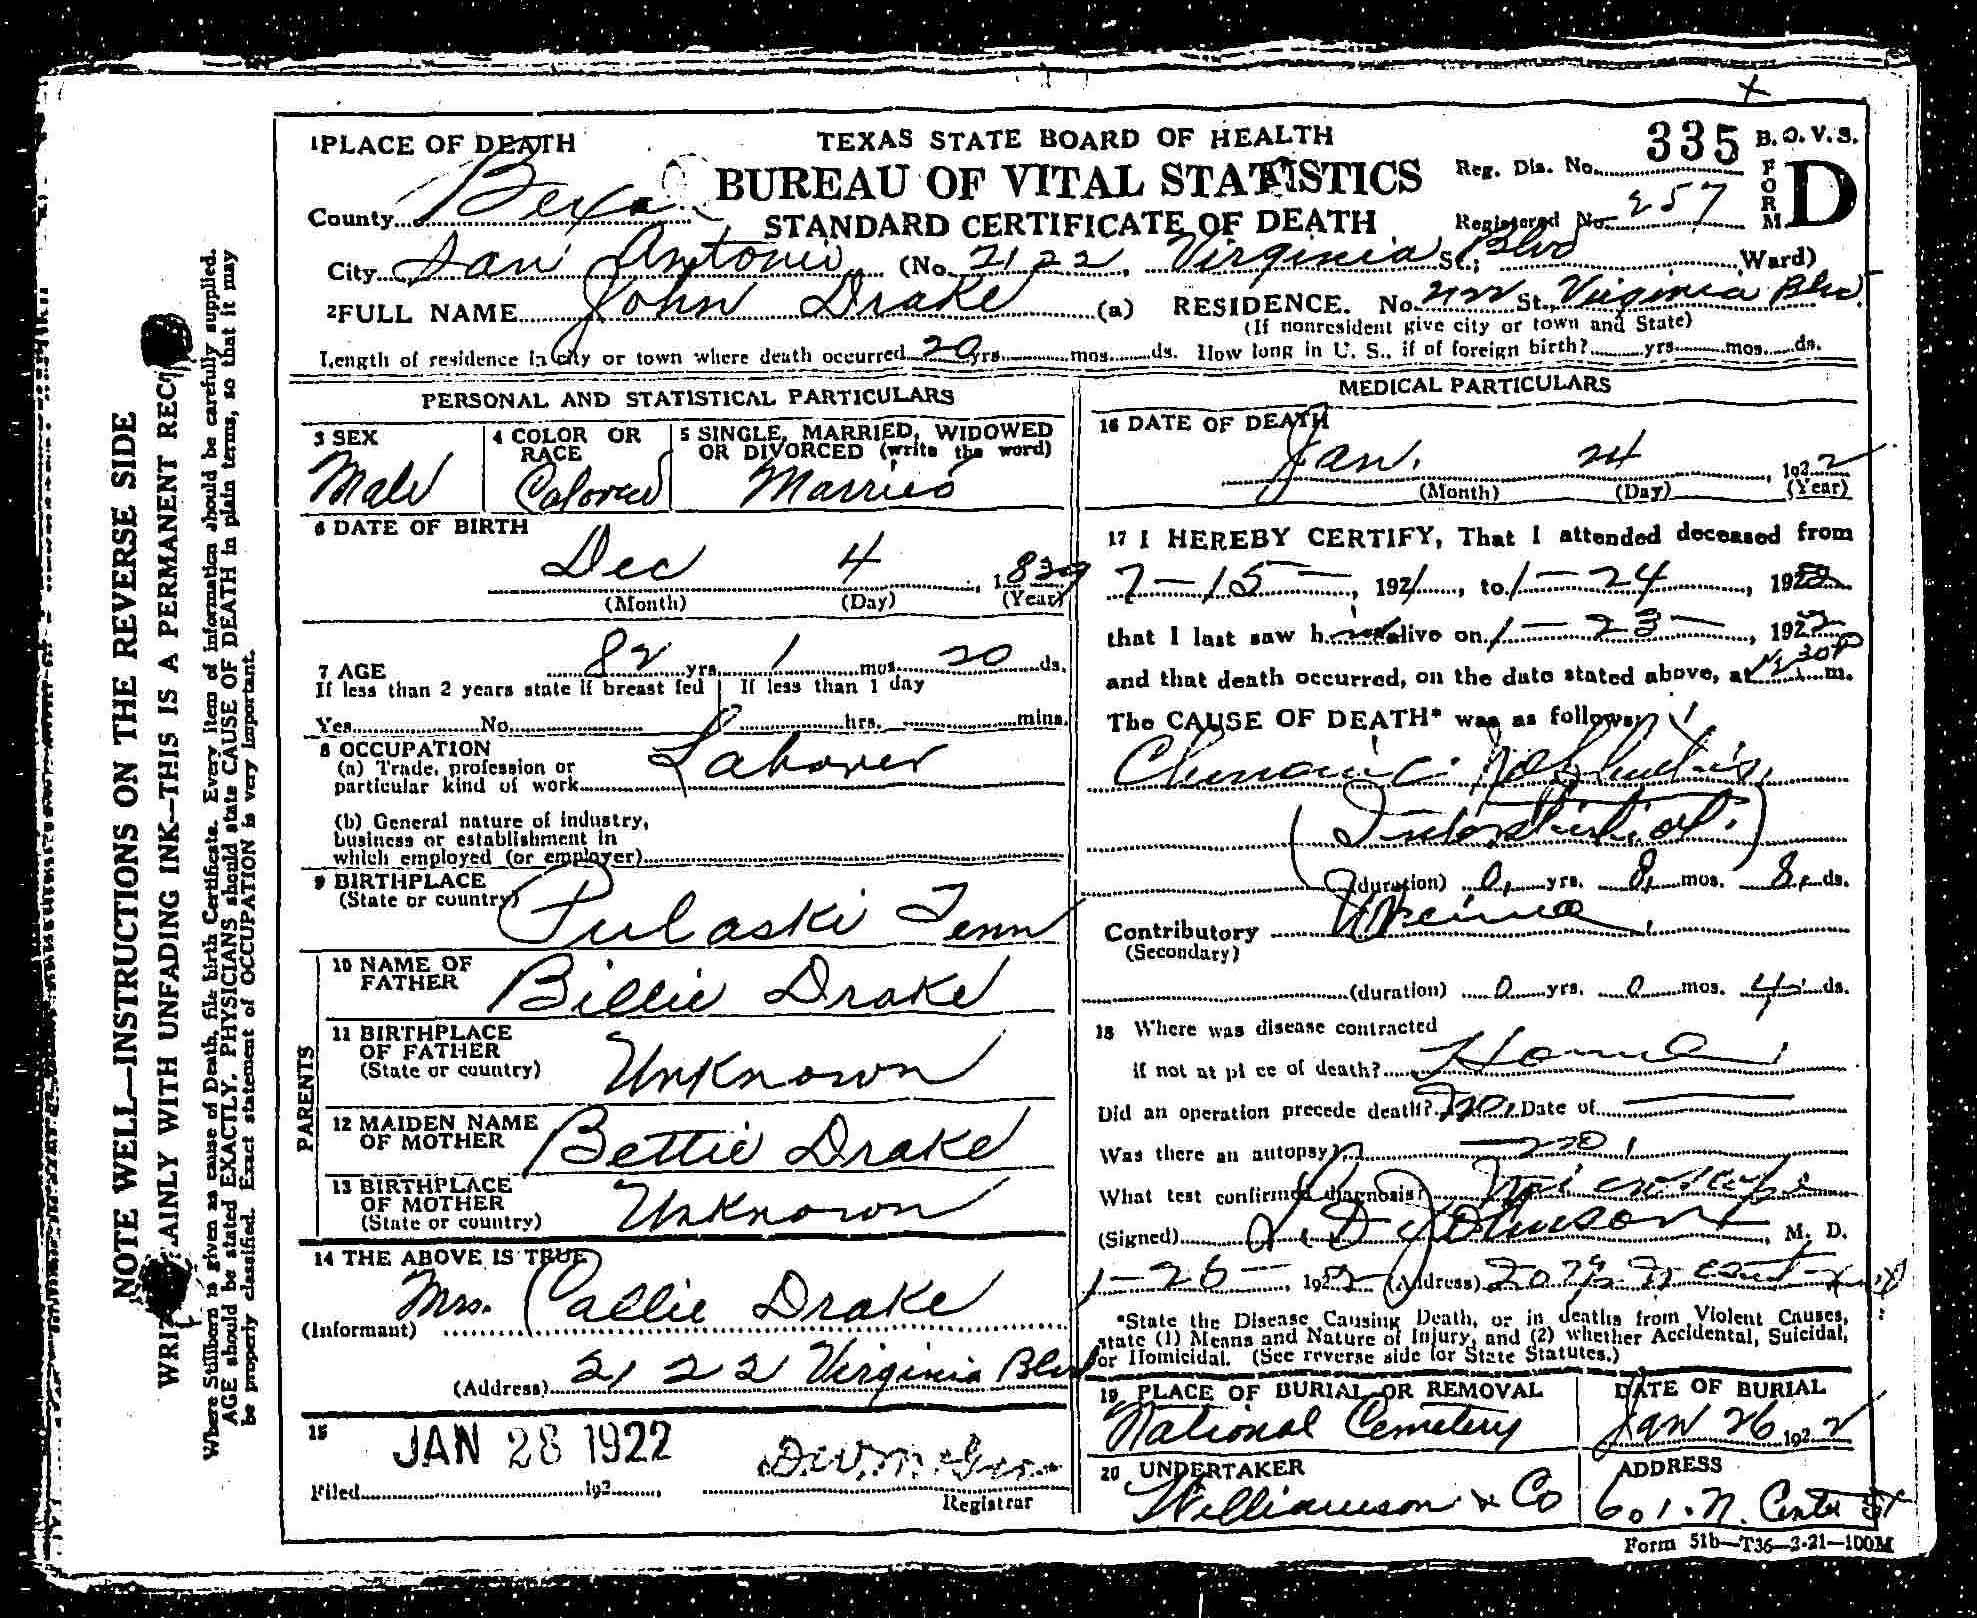 1 PLACE OF DEATH
TEXAS STATE BOARD OF HEALTH
BUREAU OF VITAL STATISTICS
STANDARD CERTIFICATE OF DEATH
Reg. Dis. No. 335
Registered No. 257
B. O. V. S.
FORM D
County Bexar
City San Antonio (No. 2122, Virginia St.; Blvd Ward)
2 FULL NAME John Drake (a) RESIDENCE. No. 2122 St., Virginia Blvd
(If nonresident give city or town and State)
Length of residence in city or town where death occurred 20 yrs. mos. ds. How long in U. S., if of foreign birth? yrs. mos. ds.
PERSONAL AND STATISTICAL PARTICULARS
3 SEX
Male
4 COLOR OR RACE
Colored
5 SINGLE, MARRIED, WIDOWED
OR DIVORCED (write the word)
Married
6 DATE OF BIRTH
Dec 4, 1839
(Month) (Day) (Year)
7 AGE 82 yrs. 1 mos. 20 ds.
If less than 2 years state if breast fed If less than 1 day
Yes No hrs. mins.
8 OCCUPATION
(a) Trade, profession or
particular kind of work Laborer
(b) General nature of industry,
business or establishment in
which employed (or employer)
9 BIRTHPLACE
(State or country) Pulaski Tenn
PARENTS
10 NAME OF
FATHER Billie Drake
11 BIRTHPLACE
OF FATHER
(State or country) Unknown
12 MAIDEN NAME
OF MOTHER Bettie Drake
13 BIRTHPLACE
OF MOTHER
(State or country) Unknown
14 THE ABOVE IS TRUE
(Informant) Mrs. Callie Drake
(Address) 2122 Virginia Blvd
15
JAN 28 1922
Filed 192
Registrar
MEDICAL PARTICULARS
16 DATE OF DEATH
Jan. 24, 1922
(Month) (Day) (Year)
17 I HEREBY CERTIFY, That I attended deceased from
7-15-, 1921, to 1-24, 1922
that I last saw h alive on 1-23-, 1922
and that death occurred, on the date stated above, at m.
The CAUSE OF DEATH* was as follows:
Chronic Nephritis,
(Interstitial.)
(duration) 0, yrs. 8, mos. 8, ds.
Contributory Uremia
(Secondary)
(duration) 0 yrs. 0 mos. 4 ds.
18 Where was disease contracted
if not at place of death? Home
Did an operation precede death? No. Date of
Was there an autopsy? no
What test confirmed diagnosis? Microscope
(Signed) Johnson, M. D.
1-26-, 1922 (Address)
*State the Disease Causing Death, or in deaths from Violent Causes,
state (1) Means and Nature of Injury, and (2) whether Accidental, Suicidal,
or Homicidal. (See reverse side for State Statutes.)
19 PLACE OF BURIAL OR REMOVAL
National Cemetery
DATE OF BURIAL
Jan 26 1922
20 UNDERTAKER
Williamson & Co
ADDRESS
601. N. Center St
Form 51b—T36—3-21—100M
NOTE WELL—INSTRUCTIONS ON THE REVERSE SIDE
WRITE PLAINLY WITH UNFADING INK—THIS IS A PERMANENT REC
Where Stillborn is given as cause of Death, file birth Certificate. Every item of information should be carefully supplied.
AGE should be stated EXACTLY. PHYSICIANS should state CAUSE OF DEATH in plain terms, so that it may
be properly classified. Exact statement of OCCUPATION is very important.